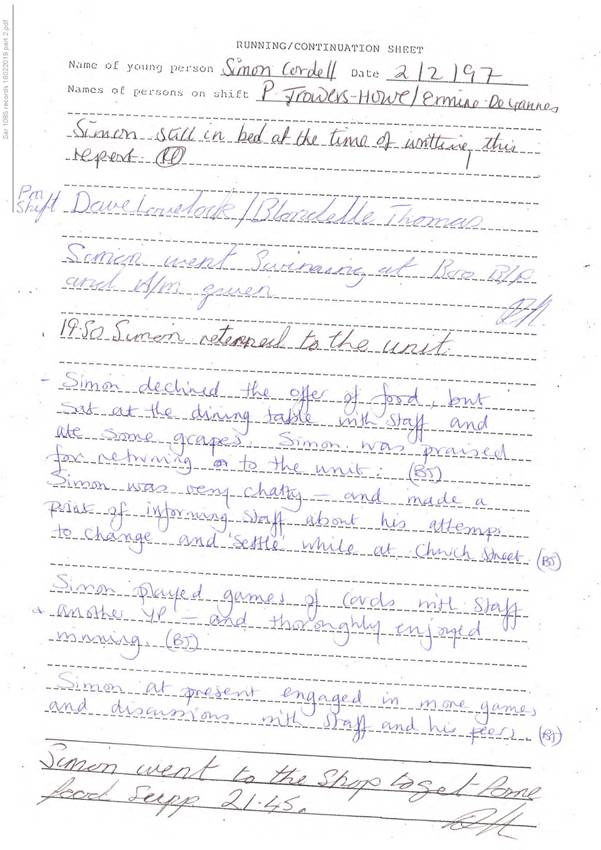 Sar 1085 records 18022019 part 2.pdf
RUNNING/CONTINUATION SHEET
Name of young person Simon Cordell Date 2/2/97
Names of persons on shift P Trowers-Howe/Ermine De
Simon still in bed at the time of writting this
report.
Pm
Shift Dave Lovelock/Blondelle Thomas
Simon went Swimming at
and given
19.50 Simon returned to the unit.
- Simon declined the offer of food, but
sat at the dining table with staff and
ate some grapes. Simon was praised
for returning on to the unit. (BT)
Simon was very chatty – and made a
point of informing staff about his attemps
to change and 'settle' while at Church Street. (BT)
Simon played games of cards with staff
+ another YP – and thoroughly enjoyed
winning. (BT)
Simon at present engaged in more games
and discussions with staff and his peers. (BT)
Simon went to the Shop to get some
food Supp 21.45.